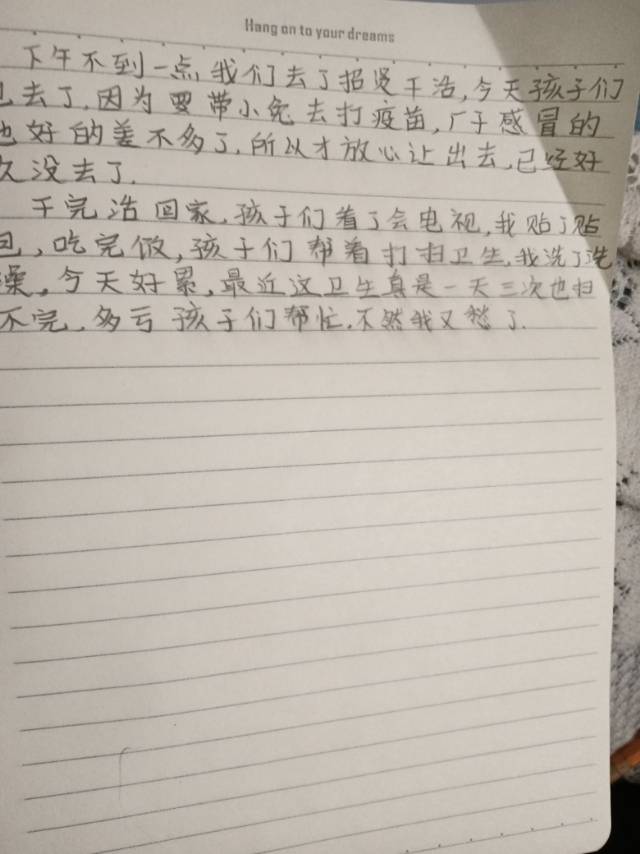 Hang on to your dreams
下午不到一点,我们去了招贤干活,今天孩子们
也去了.因为要带小兔去打疫苗,广子感冒的
也好的差不多了.所以才放心让出去,已经好
久没去了.
干完活回家,孩子们看了会电视,我贴了贴
包,吃完饭,孩子们帮着打扫卫生,我洗了洗
澡,今天好累,最近这卫生真是一天三次也扫
不完,多亏孩子们帮忙.不然我又愁了.